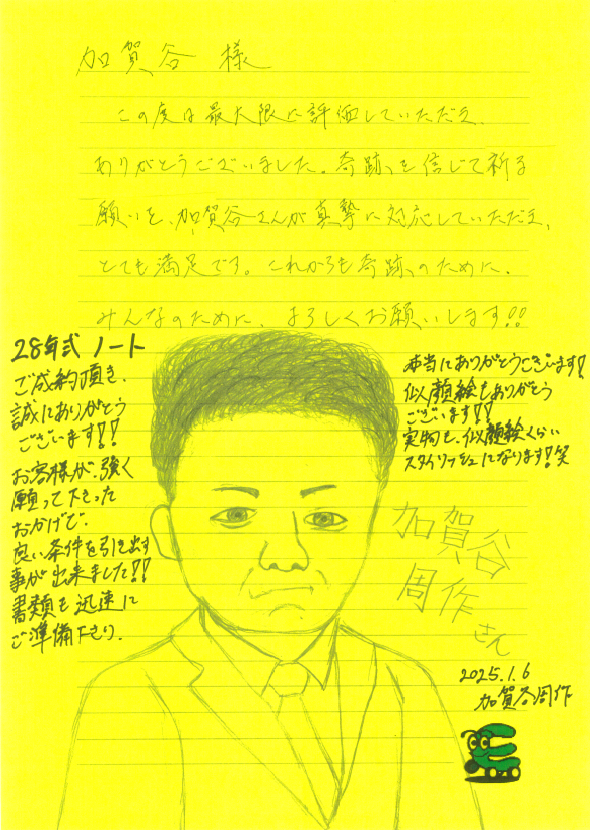 加賀谷 様
この度は最大限に評価していただき、
ありがとうございました。奇跡を信じて祈る
願いを、加賀谷さんが真摯に対応していただき、
とても満足です。これからも奇跡のために、
みんなのために、よろしくお願いします!!
28年式 ノート
ご成約頂き、
誠にありがとう
ございます!!
お客様が、強く
願って下さった
おかげで、
良い条件を引き出す
事が出来ました!!
書類も迅速に
ご準備下さり、
本当にありがとうございます!
似顔絵もありがとう
ございます!!
実物も、似顔絵くらい
スタイリッシュになります!笑
加賀谷
周作
さん
2025.1.6
加賀谷周作